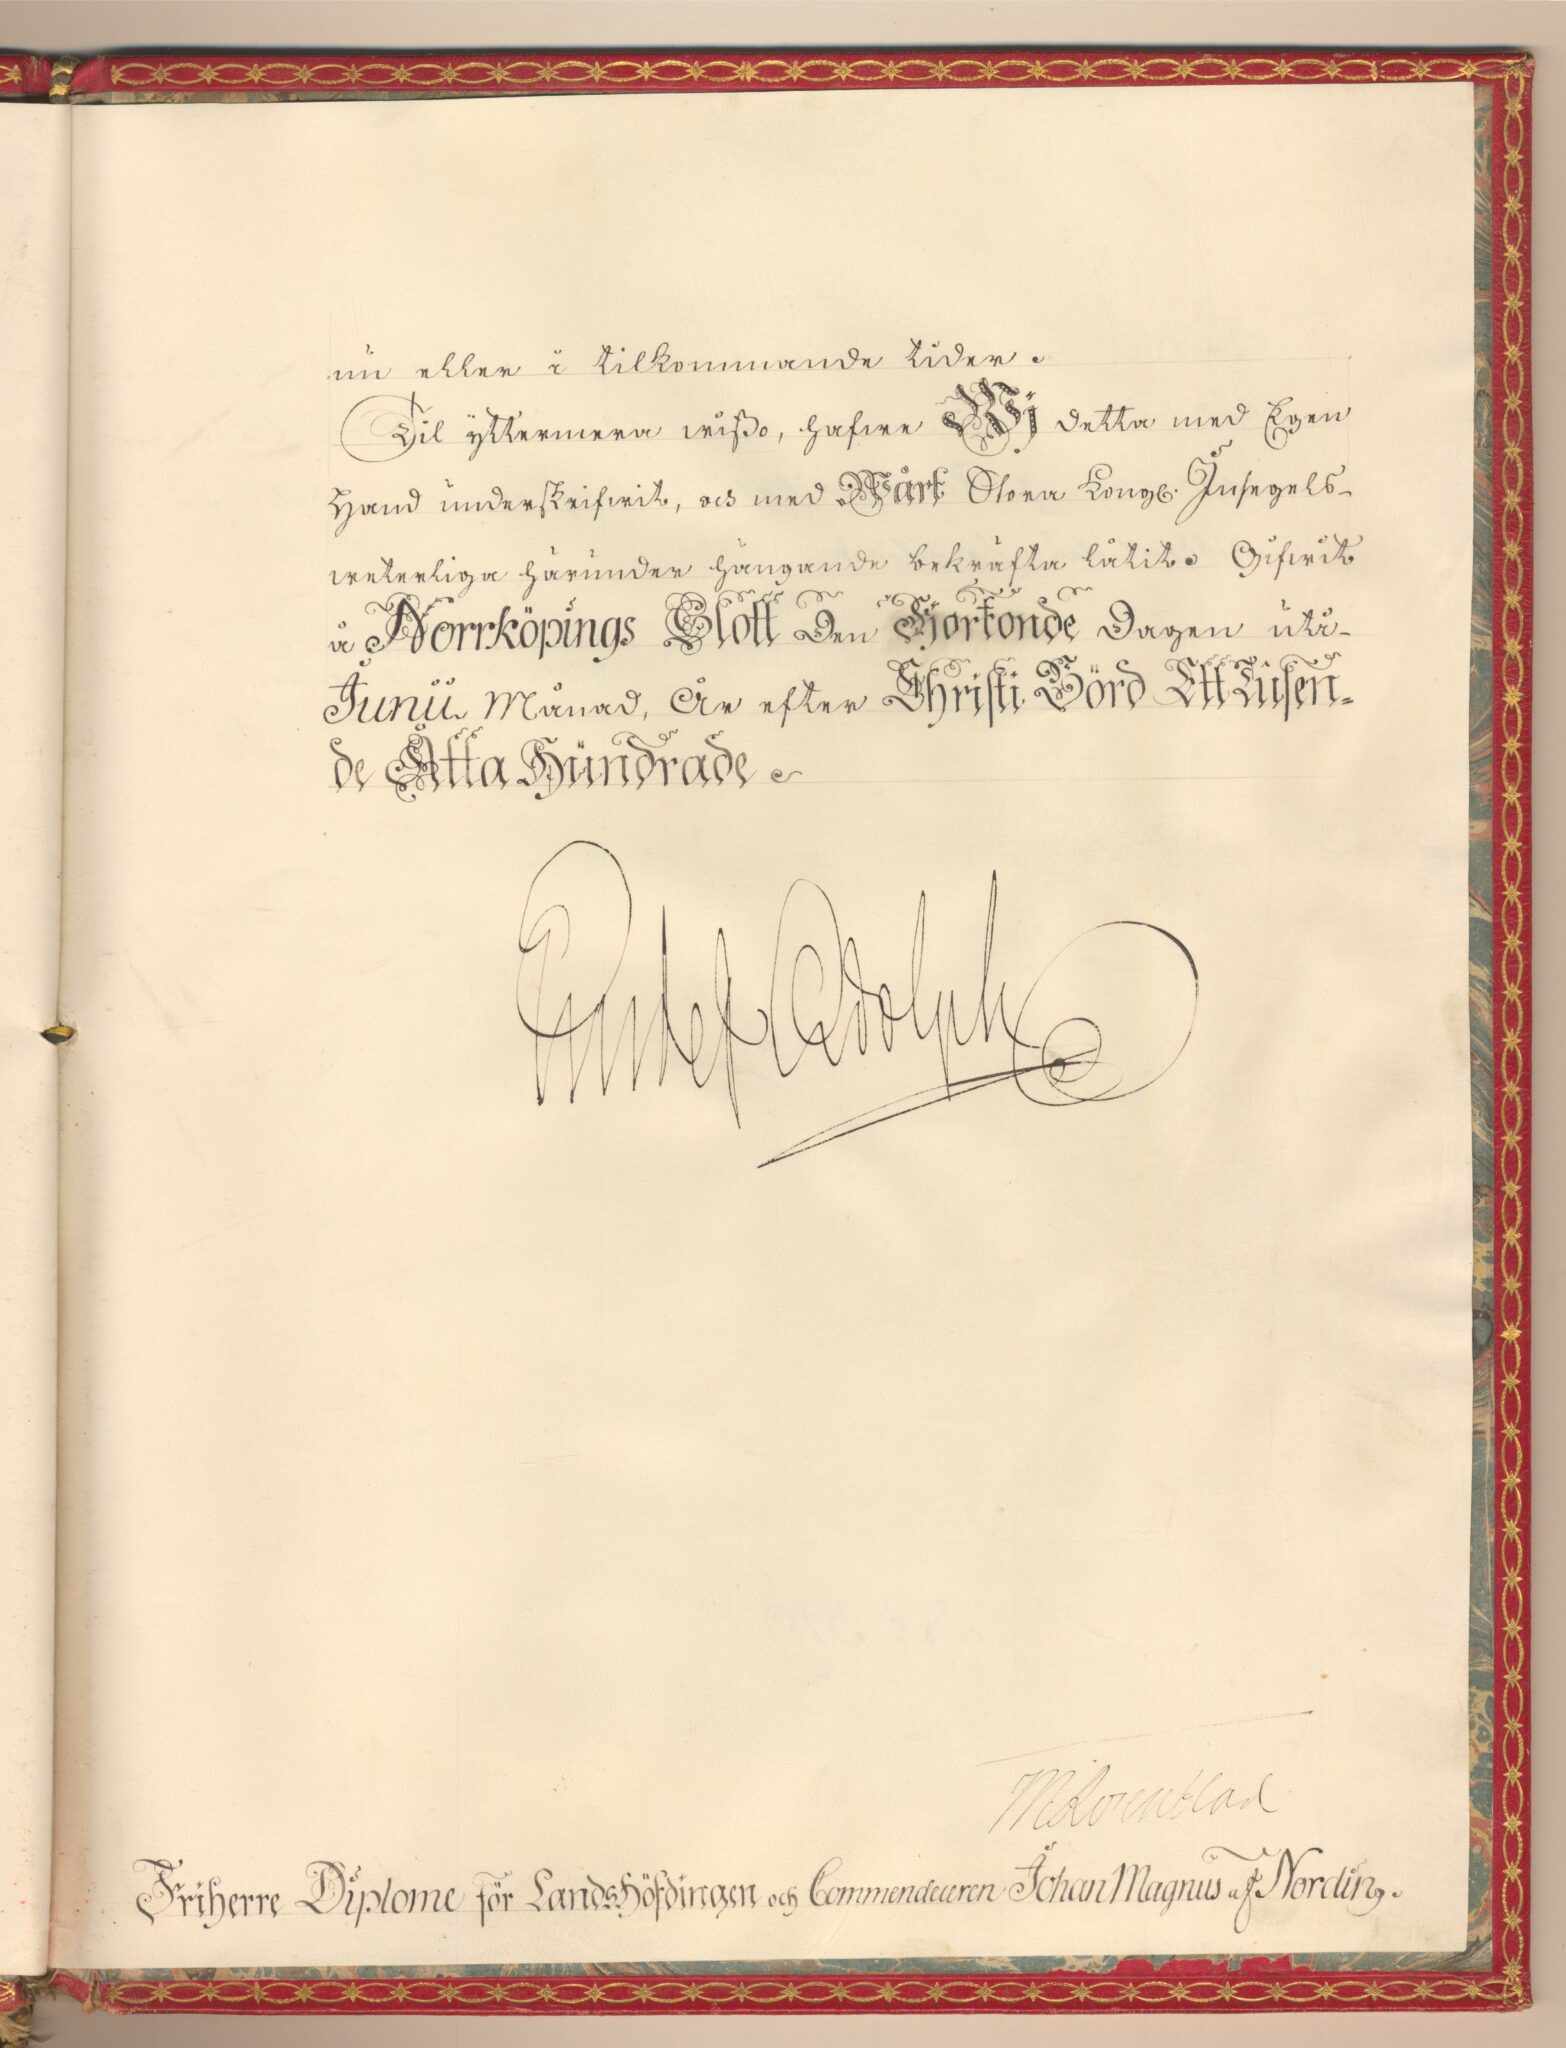 nu eller i tilkommande tider.
Til yttermera wißo, hafwe Wij detta med Egen
Hand underskrifwit, och med Wårt Stora Kongl. Insegels-
weterliga härunder hängande bekräfta låtit. Gifwit
å Norrköpings Slott Den Fjortonde Dagen utå
Junii Månad, År efter Christi Börd Ett Tusen-
de Åtta Hundrade.
Gustaf Adolph
M Rosenblad
Friherre Diplome för Landshöfdingen och Commendeuren Johan Magnus af Nordin,